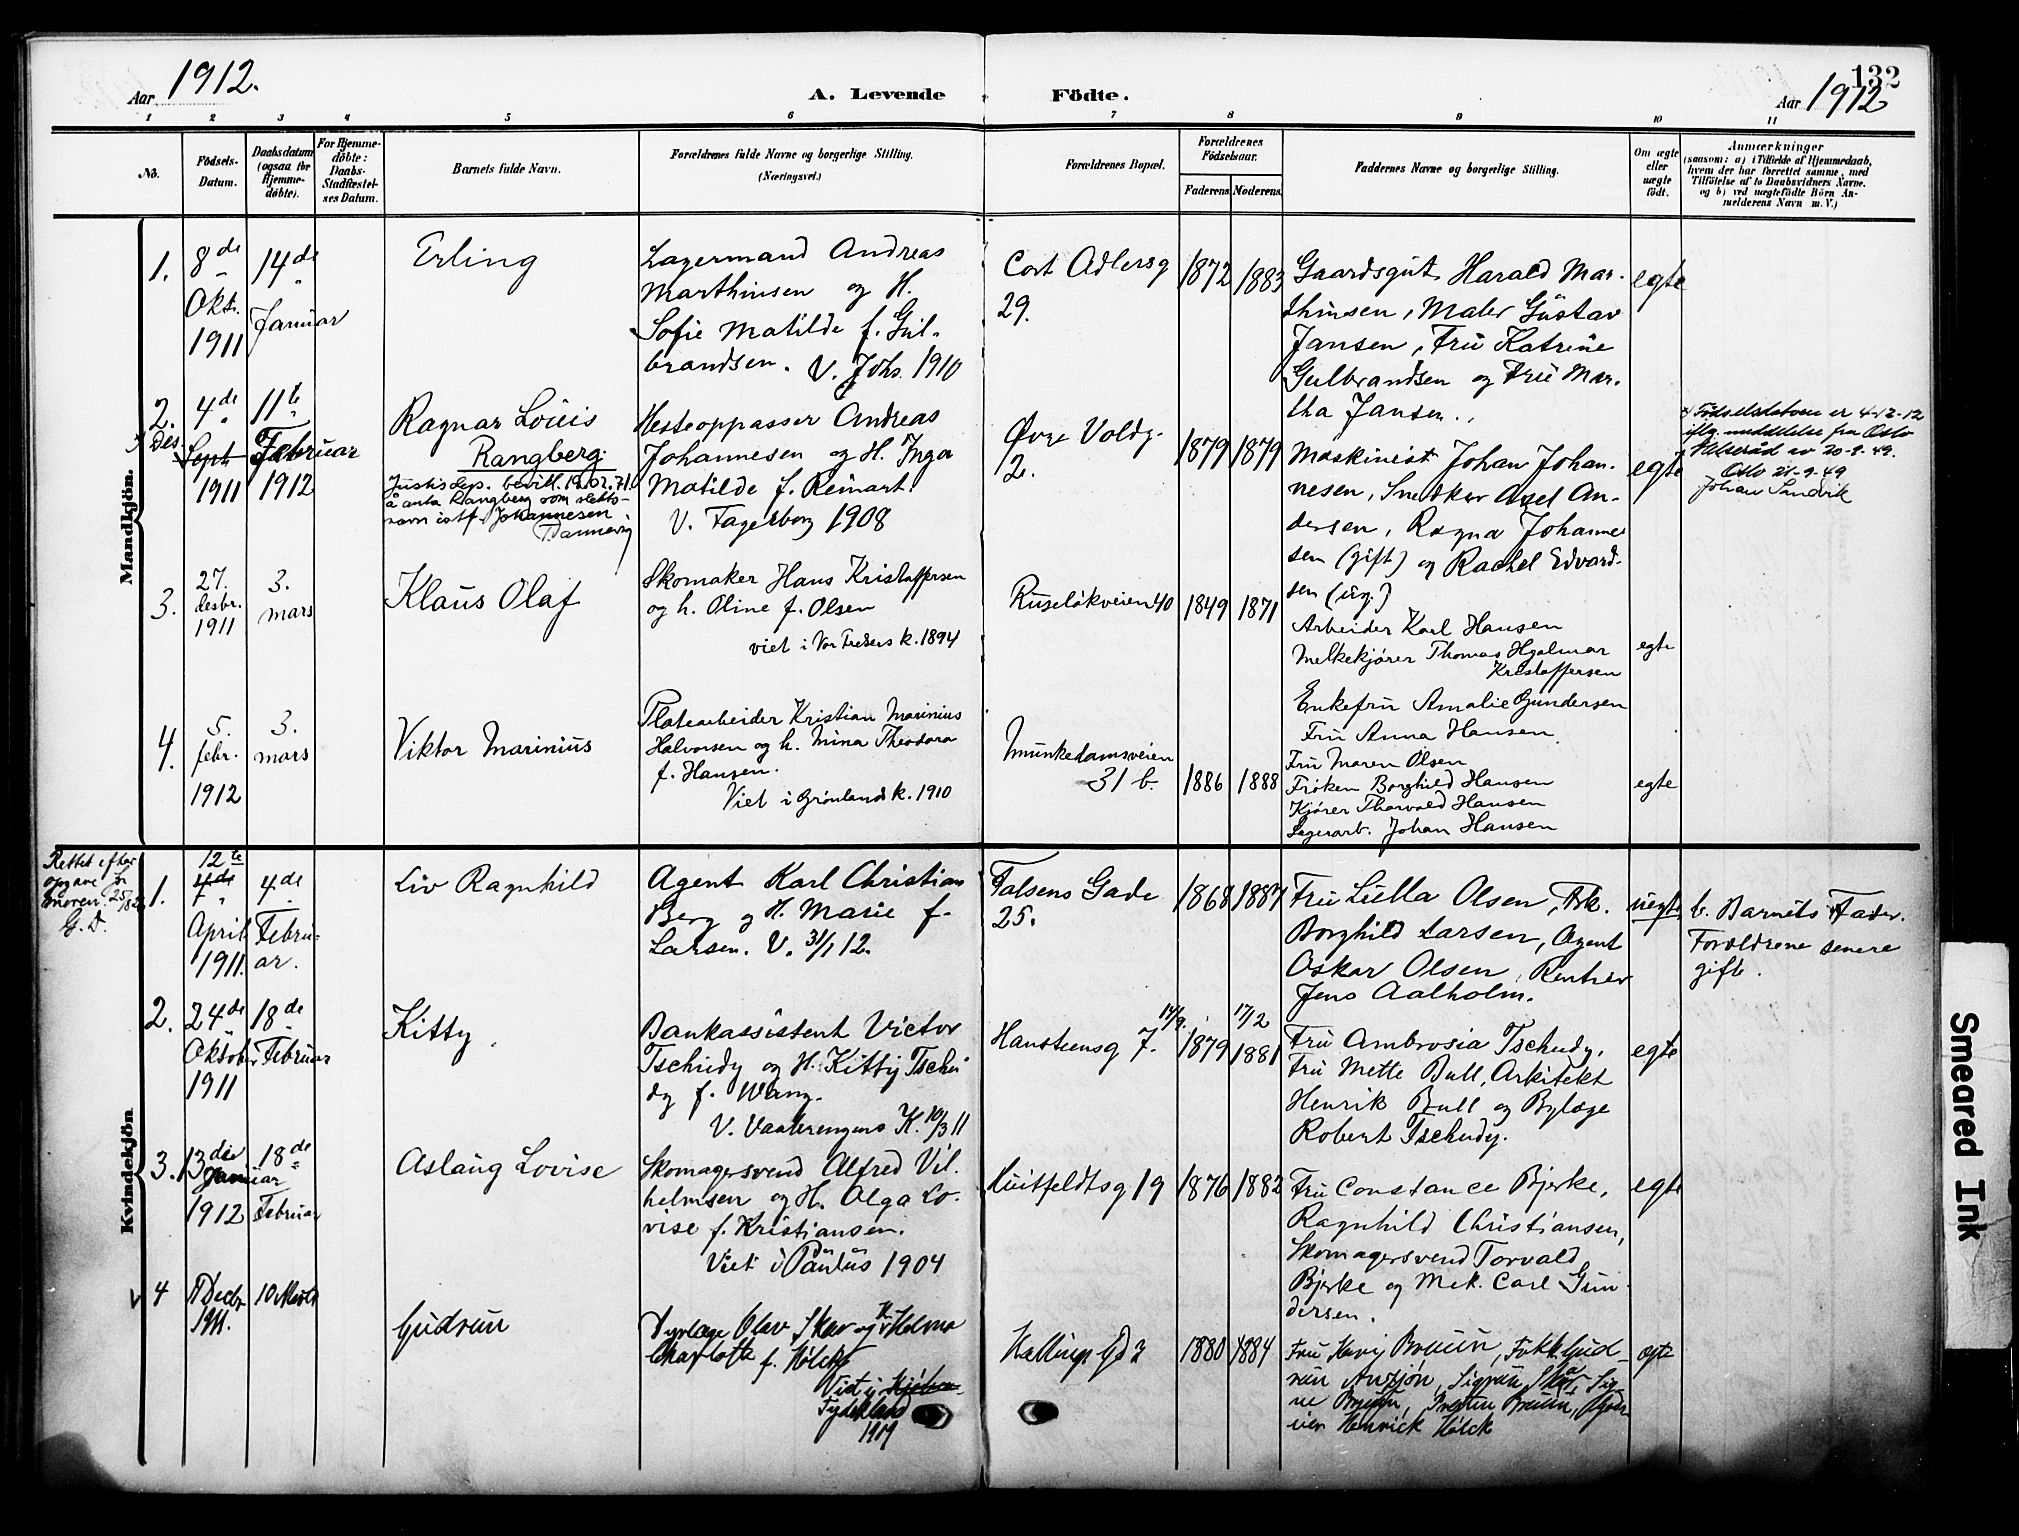 132
Aar 1912.
A. Levende Födte.
Aar 1912
1 2 3 4 5 6 7 8 9 10 11
No.
Födsels-
Datum.
Daabsdatum
(ogsaa for
Hjemme-
döbte).
For Hjemme-
döbte:
Daabs-
Stadfæstel-
ses Datum.
Barnets fulde Navn.
Forældrenes fulde Navne og borgerlige Stilling.
(Næringsvei.)
Forældrenes Bopæl.
Forældrenes
Födselsaar.
Faderens. Moderens.
Faddernes Navne og borgerlige Stilling.
Om ægte
eller
uægte
födt.
Anmærkninger
(saasom: a) i Tilfælde af Hjemmedaab,
hvem der har forrettet samme, med
Tilföielse af to Daabsvidners Navne,
og b) ved uægtefödte Börn An-
melderens Navn m. V.)
Mandkjön.
1.
8de
Okt.
1911
14de
Januar
Erling
Lagermand Andreas
Marthinsen og H.
Sofie Matilde f. Gul-
brandsen. V. Johs. 1910
Cort Adlersg
29.
1872
1883
Gaardsgut Harald Mar-
thinsen, Maler Gustav
Jansen, Fru Katrine
Gulbrandsen og Fru Mar-
tha Jansen.
egte
2.
4de
Des.
Sept
1911
11te
Februar
1912
Ragnar Louis
Rangberg
Justisdep. bevill. 19.02.71.
å anta Rangberg som slekts-
navn istf. Johannesen
Hesteoppasser Andreas
Johannesen og H. Inga
Matilde f. Reinart.
V. Fagerborg 1908
Øvre Voldg.
2.
1879
1879
Maskinist Johan Johan-
nesen, Snedker Axel An-
dersen, Ragna Johanne
sen (gift) og Rachel Edvard-
sen (ug.)
egte
Fødselsdatoen er 4-12-12
iflg. meddelelse fra Oslo
Helseråd av 20-9-49.
Oslo 21-9-49
Johan Sandvik
3.
27.
desbr.
1911
3.
mars
Klaus Olaf
Skomaker Hans Kristoffersen
og h. Oline f. Olsen
viet i Vor Frelsers k. 1894
Ruseløkveien 40
1849
1871
Arbeider Karl Hansen
Melkekjører Thomas Hjalmar
Kristoffersen
Enkefru Amalie Gundersen
Fru Anna Hansen
egte
4.
5.
febr.
1912
3.
mars
Viktor Marinius
Platearbeider Kristian Marinius
Halvorsen og h. Mina Theodora
f. Hansen.
Viet i Grønlands k. 1910
Munkedamsveien
31 b.
1886
1888
Fru Maren Olsen
Frøken Borghild Hansen
Kjører Thorvald Hansen
Lagerarb. Johan Hansen
egte
Kvindekjön
Rettet efter
opgave fr
moren 25/
G.D.
1.
12te
4de
April
1911.
4de
Febru-
ar.
Liv Ragnhild
Agent Karl Christian
Berg og H. Marie f.
Larsen. V. 31/1 12.
Falsens Gade
25.
1868
1887
Fru Lulla Olsen, Frk.
Borghild Larsen, Agent
Oskar Olsen, Rentier
Jens Aalholm.
uegte
b. Barnets Fader.
Forældrene senere
gift.
2.
24de
Oktober
1911
18de
Februar
Kitty
Bankassistent Victor
Tschudy og H. Kitty Tschu
dy f. Wang.
V. Vaalerengens K. 10/3 11
Hansteensg 7.
14/9.
1879
17/2
1881
Fru Ambrosia Tschudy,
Fru Mette Bull, Arkitekt
Henrik Bull og Bylæge
Robert Tschudy.
egte
3.
13de
Januar
1912
18de
Februar
Aslaug Lovise
Skomagersvend Alfred Vil-
helmsen og H. Olga Lo-
vise f. Kristiansen.
Viet i Paulus 1904
Huitfeldtsg 19
1876
1882
Fru Constance Bjerke,
Ragnhild Christiansen,
Skomagersvend Torvald
Bjerke og Mek. Carl Gun-
dersen.
egte
4
Decbr
1911.
10 Marts
Gudrun
Dyrlæge Olav Skar og H. Helma
Charlotte f. Hølck
Viet i
Tydskland
1880
1884
Fru Borgny Bruun, Frkk. Gud-
run, Sigrun Skar, Sig-
ne Bruun, Bruun,
Henrick Hølck
egte
Smeared Ink